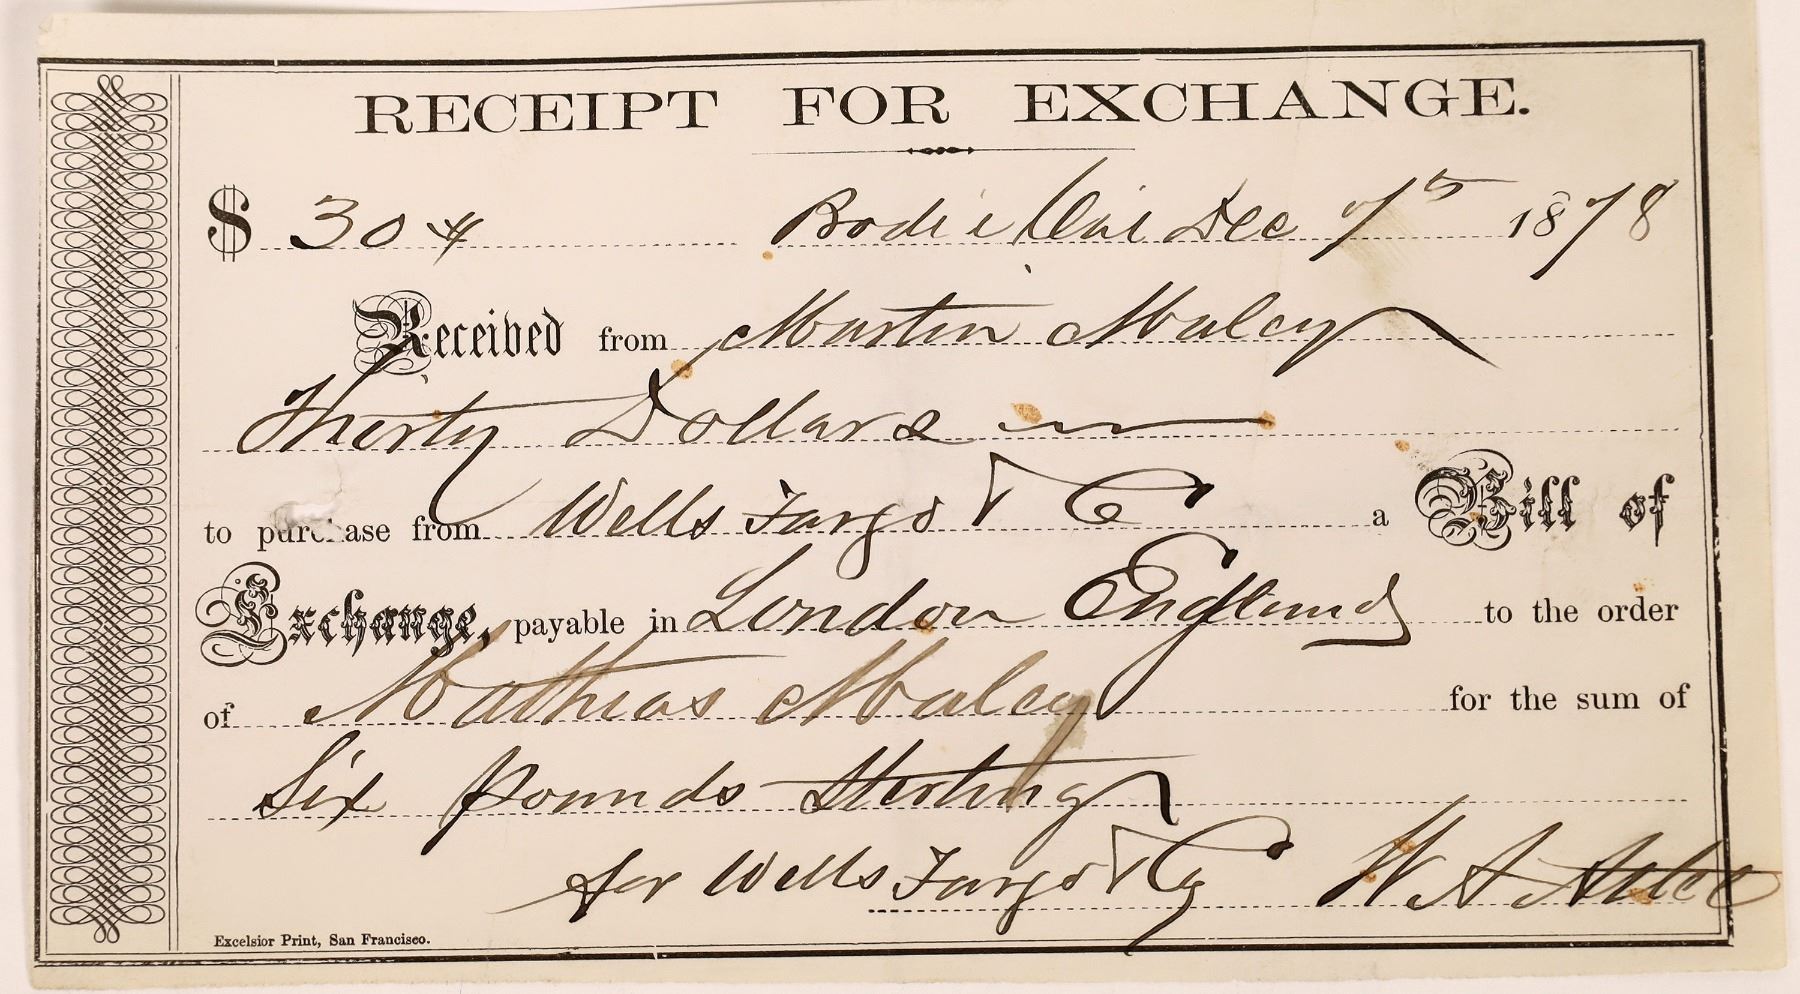 RECEIPT FOR EXCHANGE.
$ 30 Bodie Cal Dec 7th 1878
Received from Martin Maley
Thirty Dollars
to purchase from Wells Fargo & Co a Bill of
Exchange, payable in London England to the order
of Mathias Maley for the sum of
Six pounds Sterling
for Wells Fargo & Co W A
Excelsior Print, San Francisco.